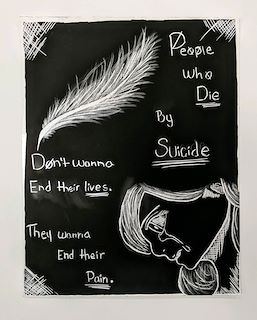 People
Who
Die
By
Suicide
Don't wanna
End their lives.
They wanna
End their
Pain.